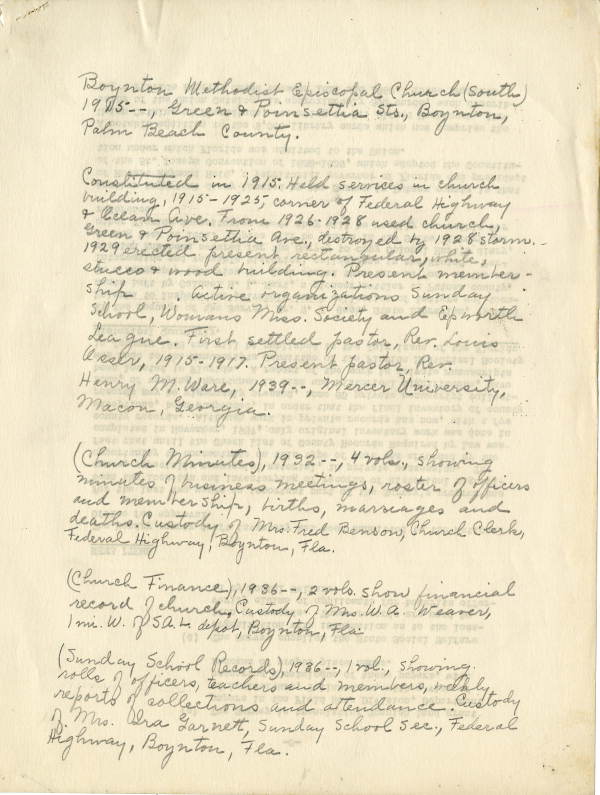 Boynton Methodist Episcopal Church (South)
1915--, Green & Poinsettia Sts., Boynton,
Palm Beach County.
Constituted in 1915. Held services in church
building, 1915-1925, corner of Federal Highway
& Ocean Ave. From 1926-1928 used church,
Green & Poinsettia Ave., destroyed by 1928 storm.
1929 erected present rectangular, white,
stucco & wood building. Present member-
ship . Active organizations Sunday
School, Womans Miss. Society and Epworth
League. First settled pastor, Rev. Louis
1915-1917. Present pastor, Rev.
Henry M. Ware, 1939--, Mercer University,
Macon, Georgia.
(Church Minutes), 1932--, 4 vols., showing
minutes of business meetings, roster of officers
and membership, births, marriages and
deaths. Custody of Mrs. Fred Benson, Church Clerk,
Federal Highway, Boynton, Fla.
(Church Finance), 1936--, 2 vols. show financial
record of church. Custody of Mrs. W. A. Weaver,
1 mi. W. of S.A.L. depot, Boynton, Fla.
(Sunday School Records), 1936--, 1 vol., showing
rolls of officers, teachers and members, weekly
reports of collections and attendance. Custody
of Mrs. Garnett, Sunday School Sec., Federal
Highway, Boynton, Fla.